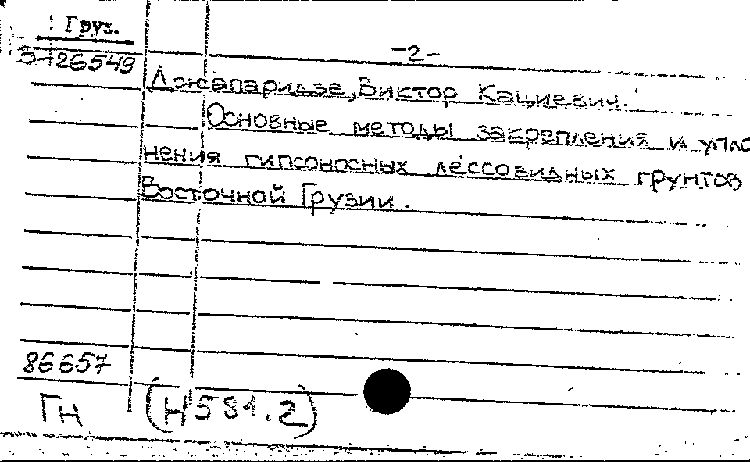 Груз.
-2-
3-126549
Джапаридзе, Виктор Кациевич.
Основные методы закрепления и упло
нения гипсоносных лёссовидных грунтов
Восточной Грузии.
86657
ГН (Н581.2)